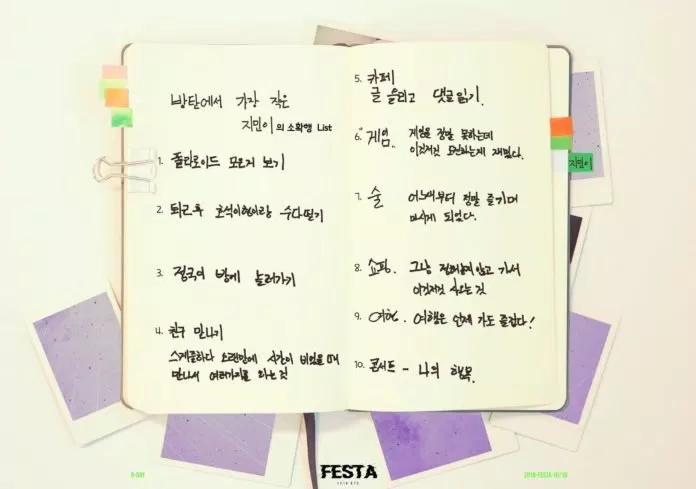 방탄에서 가장 작은
지민이의 소확행 List
1. 폴라로이드 모은거 보기
2. 퇴근후 호석이형이랑 수다떨기
3. 정국이 방에 놀러가기
4. 친구 만나기
스케줄하다 오랜만에 시간이 비었을 때
만나서 여러가지를 하는 것
5. 카페
글 올리고 댓글 읽기.
6. "게임" 게임을 정말 못하는데
이것저것 도전하는게 재밌다.
7. 술 어느때부터 정말 즐기며
마시게 되었다.
8. 쇼핑. 그냥 정해놓지 않고 가서
이것저것 사는 것
9. 여행. 여행은 언제 가도 즐겁다!
10. 콘서트 - 나의 행복.
지민이
D-DAY
FESTA
2018 BTS